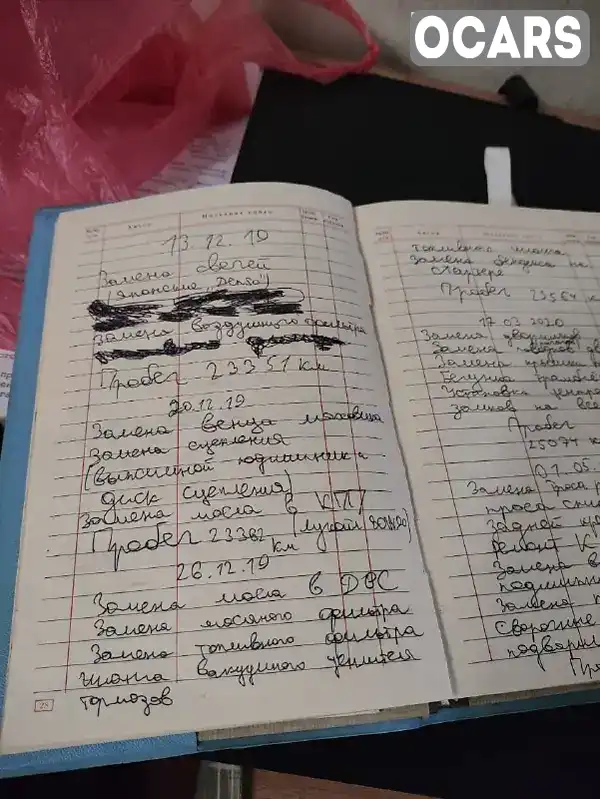 OCARS
13.12.19
Замена свечей
(японские "Denso")
Замена воздушного фильтра
Пробег 23351 км
20.12.19
Замена венца маховика
Замена сцепления
(выжимной подшипник и
диск сцепления)
Замена масла в КПП
Пробег 23382 (Лукойл
км
26.12.19
Замена масла в ДВС
Замена масляного фильтра
Замена топливного фильтра
шланга вакуумного усилителя
тормозов
28
топливного шланга
Замена бендикса на
стартере
Пробег 23564 к
17.03.2020
Замена дворников
Замена
Замена крышки
бегунка
Установка центр
замков на все
Пробег
25074 к
01.05.
Замена троса
троса
задней
ремонт К
Замена в
подшипн
Замена
Сварочные
подварка